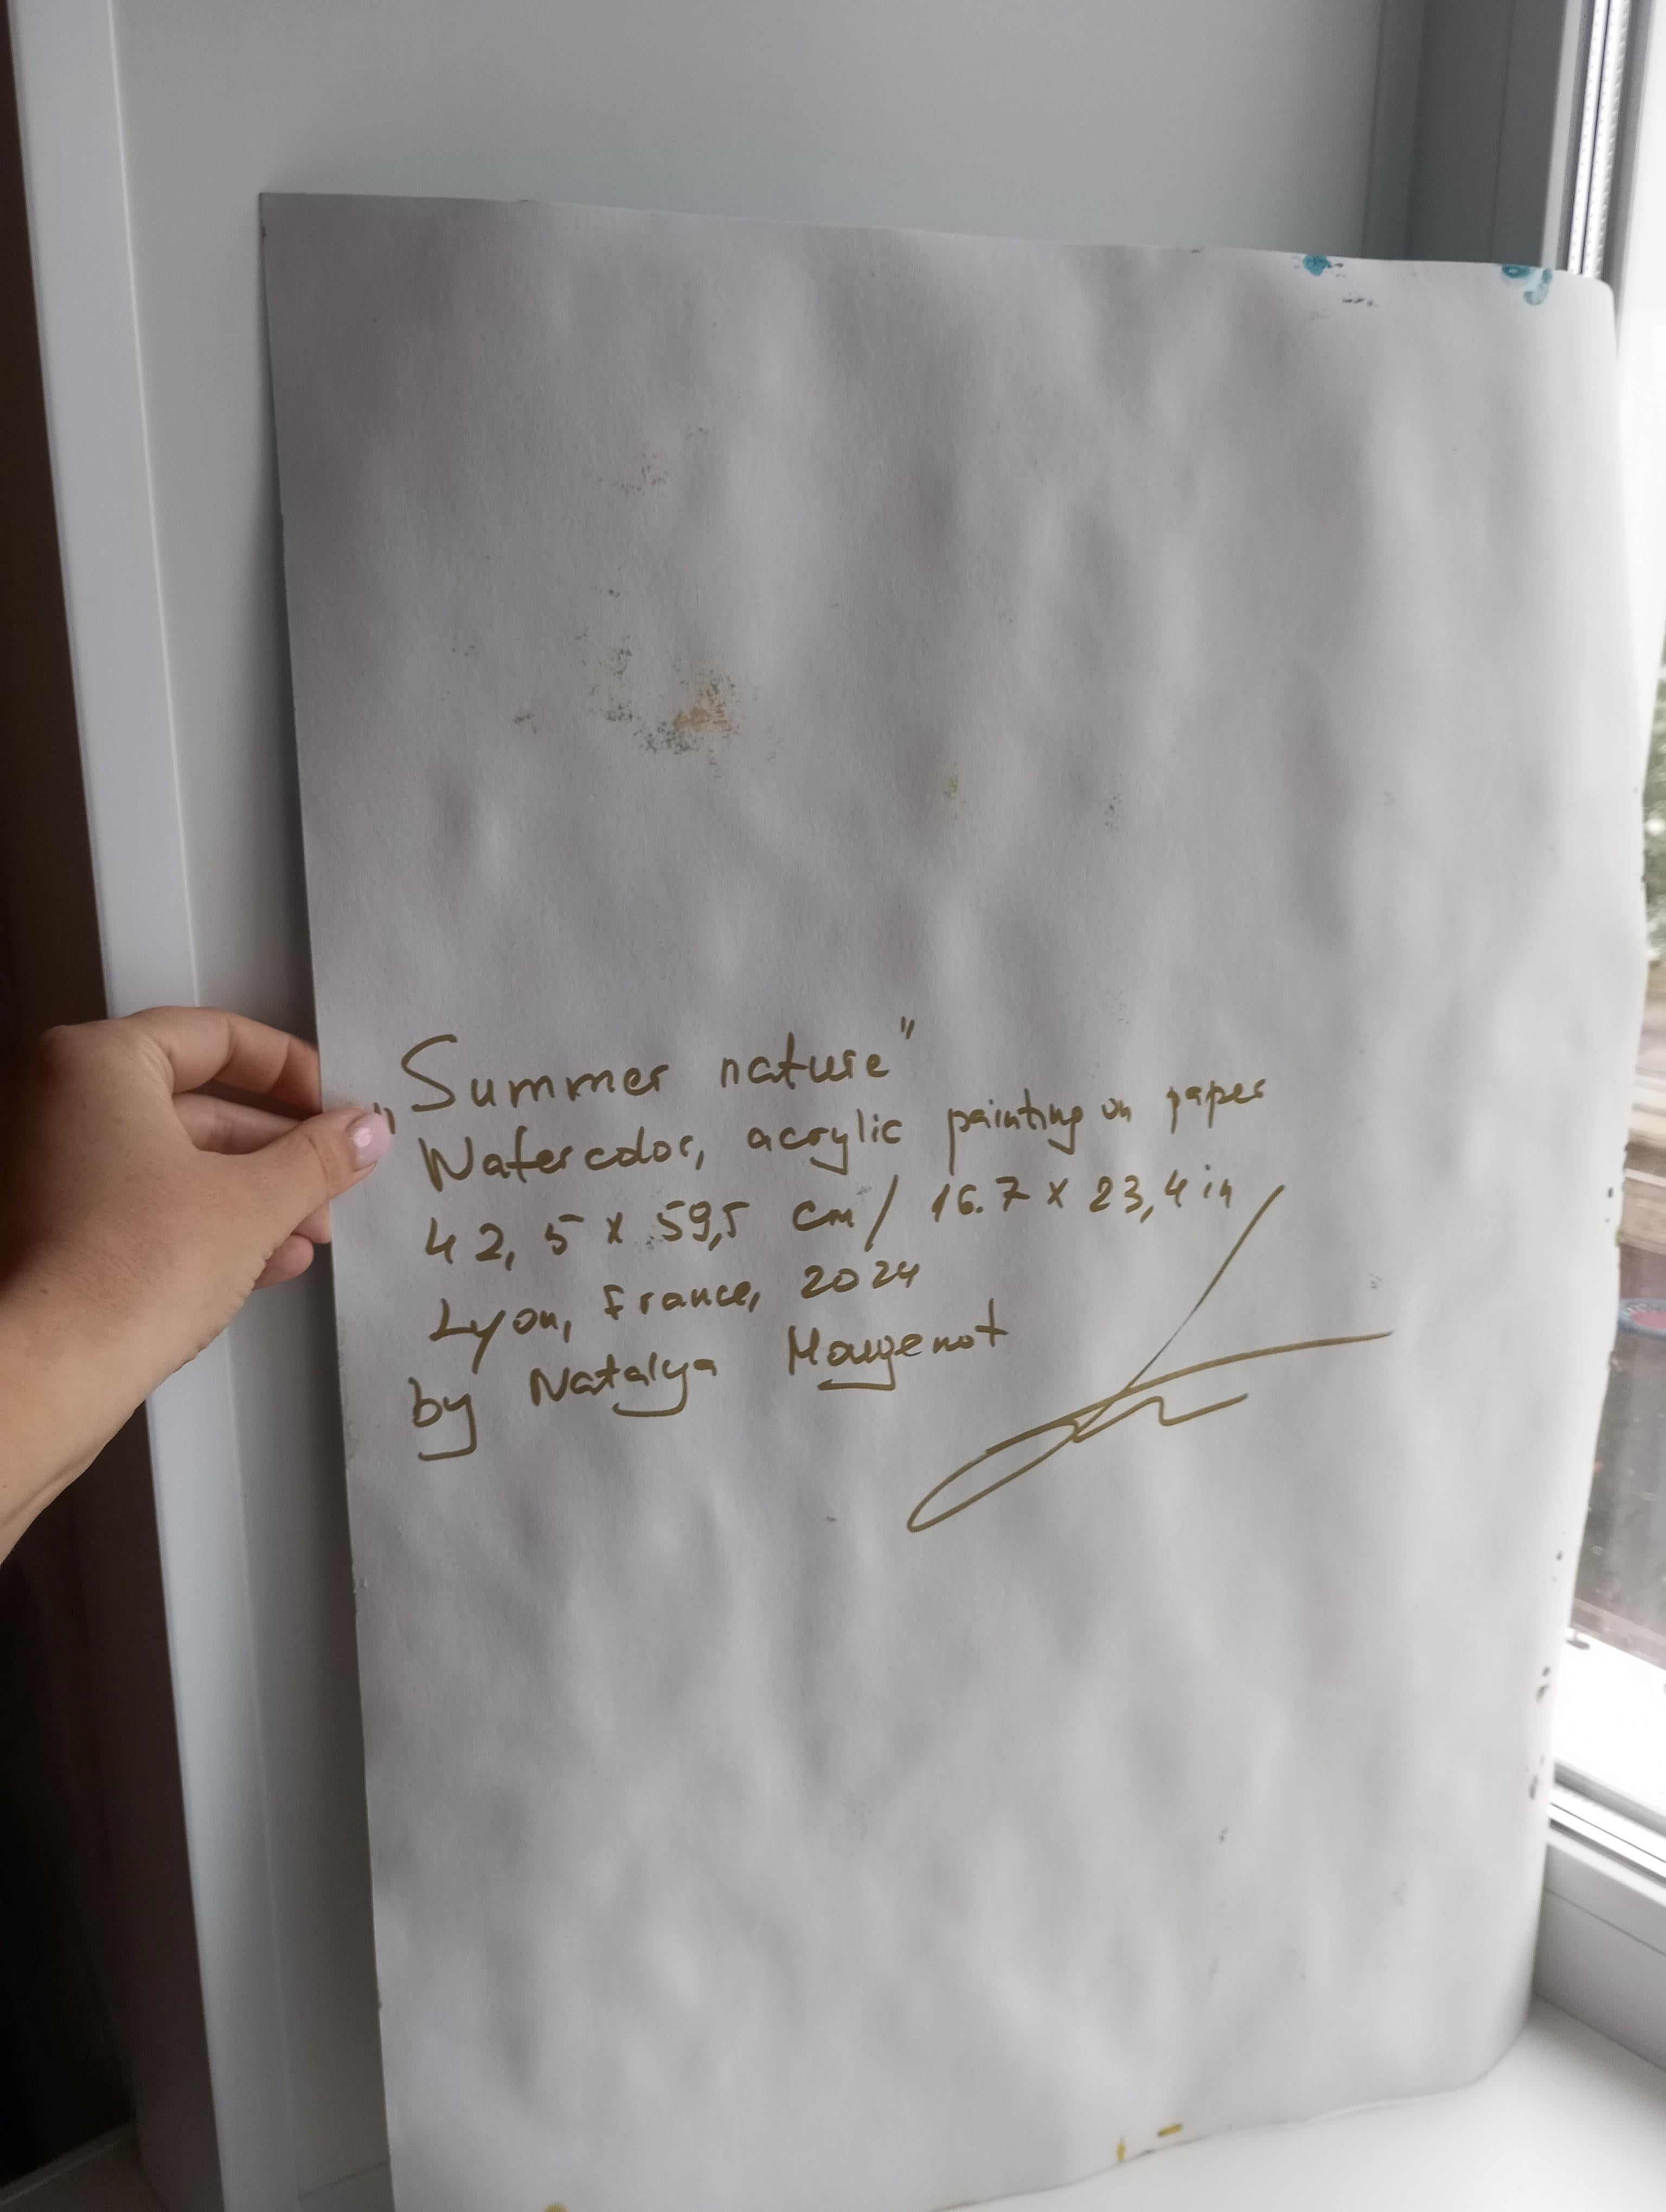 „Summer nature"
Watercolor, acrylic painting on paper
42,5 x 59,5 cm/ 16.7 x 23,4 in
Lyon, France, 2024
by Natalya Mougenot